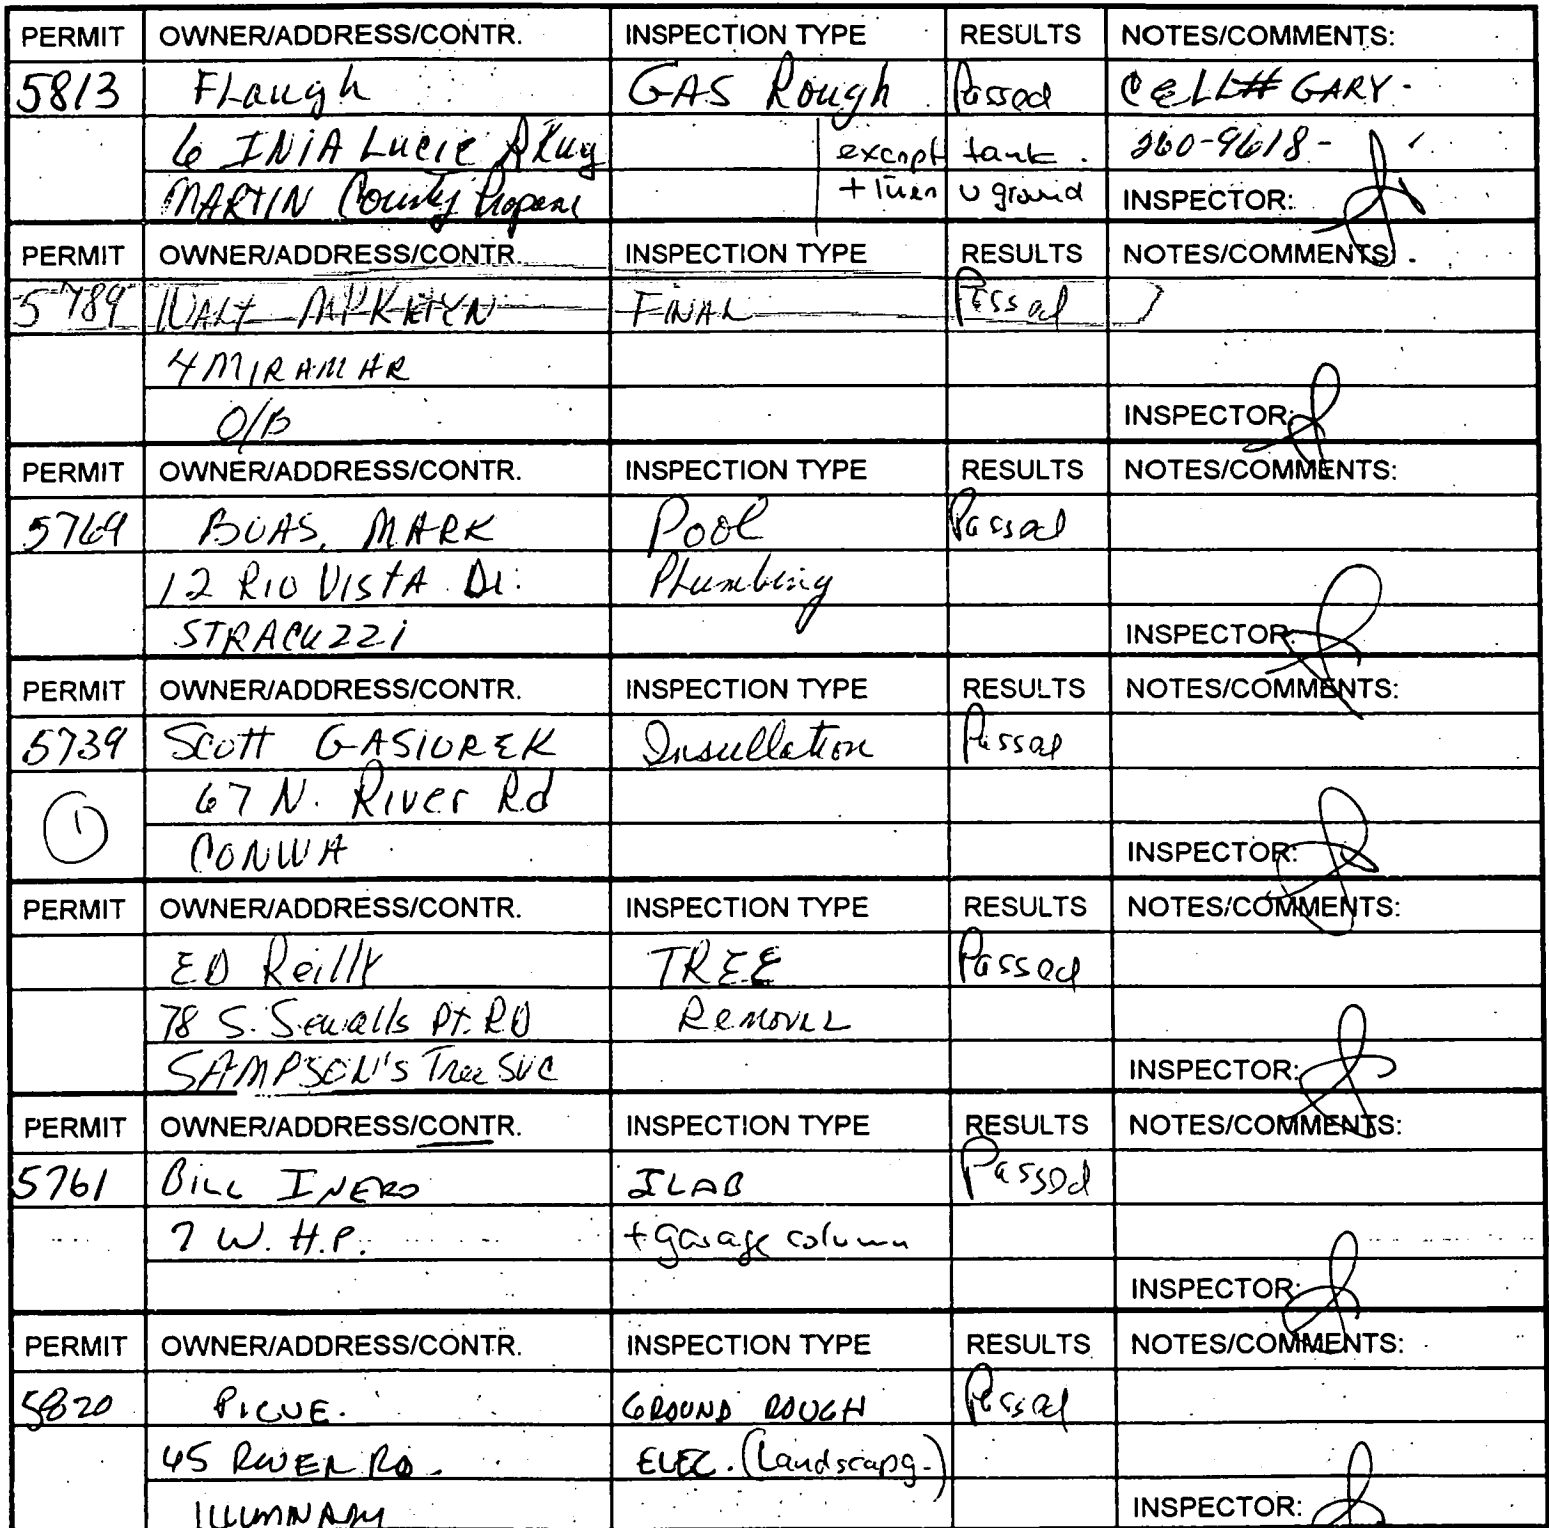 PERMIT OWNER/ADDRESS/CONTR. INSPECTION TYPE RESULTS NOTES/COMMENTS:
5813 Flaugh GAS Rough Passed CELL# GARY-
6 INIA Lucie PKwy except tank. 260-9618-
MARTIN County Propane + u ground INSPECTOR:
PERMIT OWNER/ADDRESS/CONTR. INSPECTION TYPE RESULTS NOTES/COMMENTS:
5789 WALT FINAL Passed
4 MIRAMAR
O/B INSPECTOR:
PERMIT OWNER/ADDRESS/CONTR. INSPECTION TYPE RESULTS NOTES/COMMENTS:
5769 BUAS, MARK Pool Passed
12 RIO VISTA Dr. Plumbing
STRACUZZI INSPECTOR:
PERMIT OWNER/ADDRESS/CONTR. INSPECTION TYPE RESULTS NOTES/COMMENTS:
5739 Scott GASIOREK Insullation Passed
1 67 N. River Rd
CONWA INSPECTOR:
PERMIT OWNER/ADDRESS/CONTR. INSPECTION TYPE RESULTS NOTES/COMMENTS:
ED Reilly TREE Passed
78 S. Sewalls Pt. RD Removal
SAMPSON'S Tree SVC INSPECTOR:
PERMIT OWNER/ADDRESS/CONTR. INSPECTION TYPE RESULTS NOTES/COMMENTS:
5761 BILL INERO SLAB Passed
7 W. H.P. + garage column
INSPECTOR:
PERMIT OWNER/ADDRESS/CONTR. INSPECTION TYPE RESULTS NOTES/COMMENTS:
5820 PICUE. GROUND ROUGH Passed
45 RIVER RD. ELEC. (Landscapg.)
INSPECTOR: